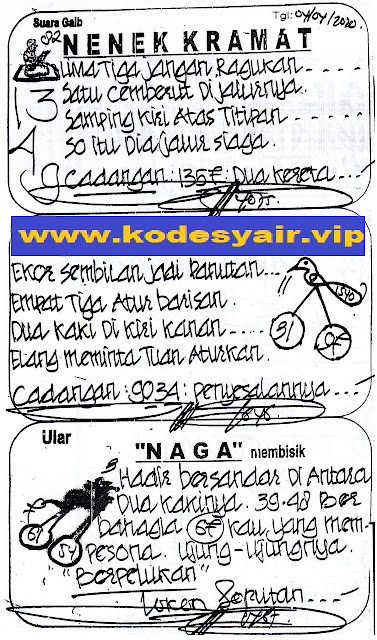 Suara Gaib
Tgl: 04/04/2020.
NENEK KRAMAT
Lima Tiga jangan Ragukan
Satu cemberut Di jalurnya.
Samping Kiri Atas Titipan
So itu Dia jalur siaga.
Cadangan: 1367: Dua Kereta
13
A
9
www.kodesyair.vip
Ekor sembilan jadi Panutan...
Empat Tiga Atur barisan.
Dua kaki Di Kiri Kanan....
Elang meminta Tuan Aturkan.
Cadangan: 9034: penyesalannya...
1540
31
Ular
"NAGA" membisik
Hadir bersandar Di Antara
Dua kakinya. 39.48 Ber
bahagia 67 kau yang mem-
pesona. ujung-ujungnya.
"Berpelukan"
61
54